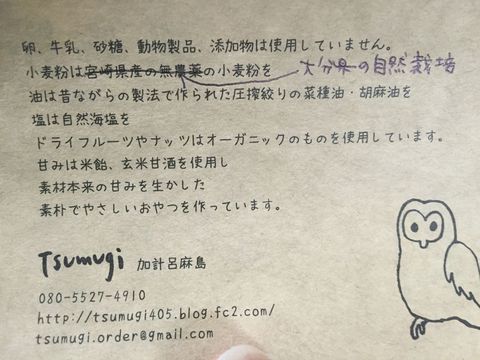 卵、牛乳、砂糖、動物製品、添加物は使用していません。
小麦粉は宮崎県産の無農薬の小麦粉を 大分県の自然栽培
油は昔ながらの製法で作られた圧搾絞りの菜種油・胡麻油を
塩は自然海塩を
ドライフルーツやナッツはオーガニックのものを使用しています。
甘みは米飴、玄米甘酒を使用し
素材本来の甘みを生かした
素朴でやさしいおやつを作っています。
Tsumugi 加計呂麻島
080-5527-4910
http://tsumugi405.blog.fc2.com/
tsumugi.order@gmail.com